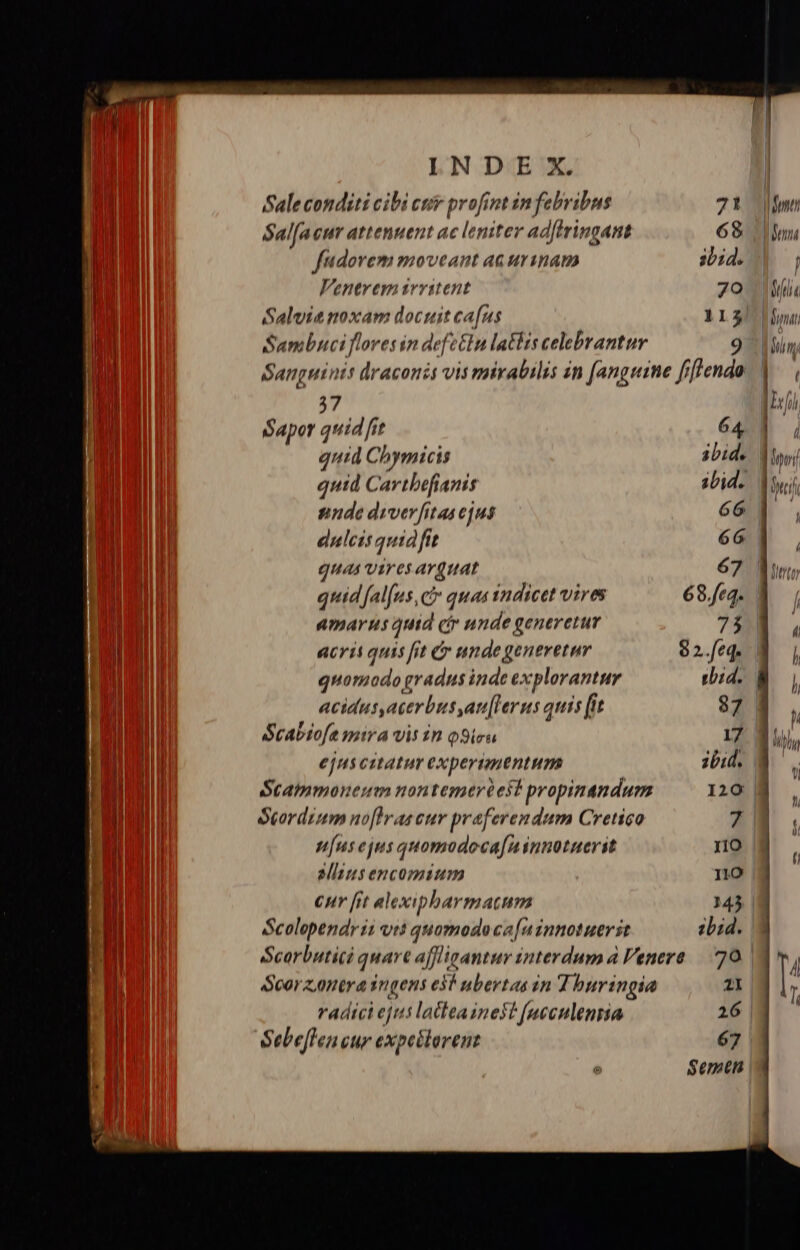 INDEX.
Sale conditi cibi cur proſint in febribus 71
Salſa cur attenuent ac leniter adſtringant 68
ſudorem moveant ac urinam ibid.
Ventrem irritent 70
Salviæ noxam docuit caſus 113
Sambuci flores in defectu lactis celebrantur 9
Sanguinis draconis vis mirabilis in ſanguine ſiſtendo
37
Sapor quid ſit 64
quid Chymicis ibid.
quid Cartheſianis ibid.
unde diverſitas ejus 66
dulcis quid ſit 66
quas vires arguat 67
quid ſalſus, & quas indicet vires 68.ſeq.
amarus quid & unde generetur 73
acris quis ſit & unde generetur 82.ſeq.
quomodo gradus inde explorantur ibid.
acidus, acerbus, auſterus quis ſit 87
Scabioſæ mira vis in φθίσει 17
ejus citatur experimentum ibid.
Scammoneum non temerè est propinandum 120
Scordium noſtras cur præferendum Cretico 7
uſus ejus quomodo caſu innotuerit 110
illius encomium 110
cur ſit alexipharmacum 143
Scolopendrii vis quomodo caſu innotuerit ibid.
Scorbutici quare affligantur interdum à Venere 70
Scorzonera ingens est ubertas in Thuringia 21
radici ejus lactea inest ſucculentia 26
Sebeſten cur expectorent 67
Semen